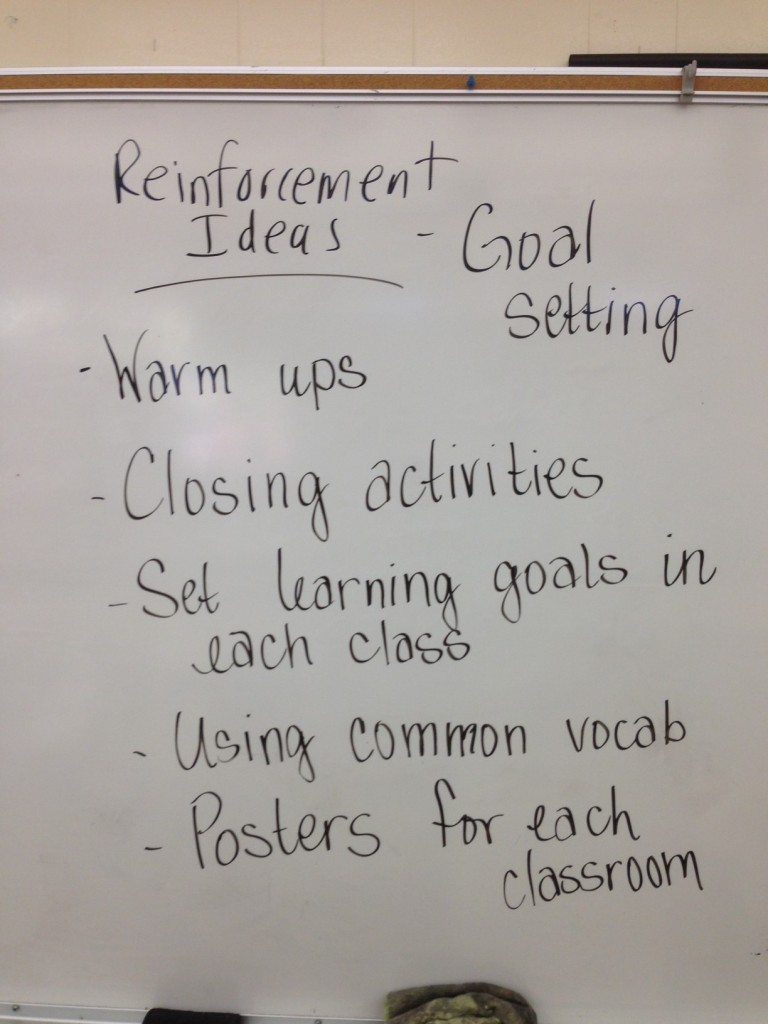 Reinforcement
Ideas - Goal
setting
- Warm ups
- Closing activities
- Set learning goals in
each class
- Using common vocab
- Posters for each
classroom